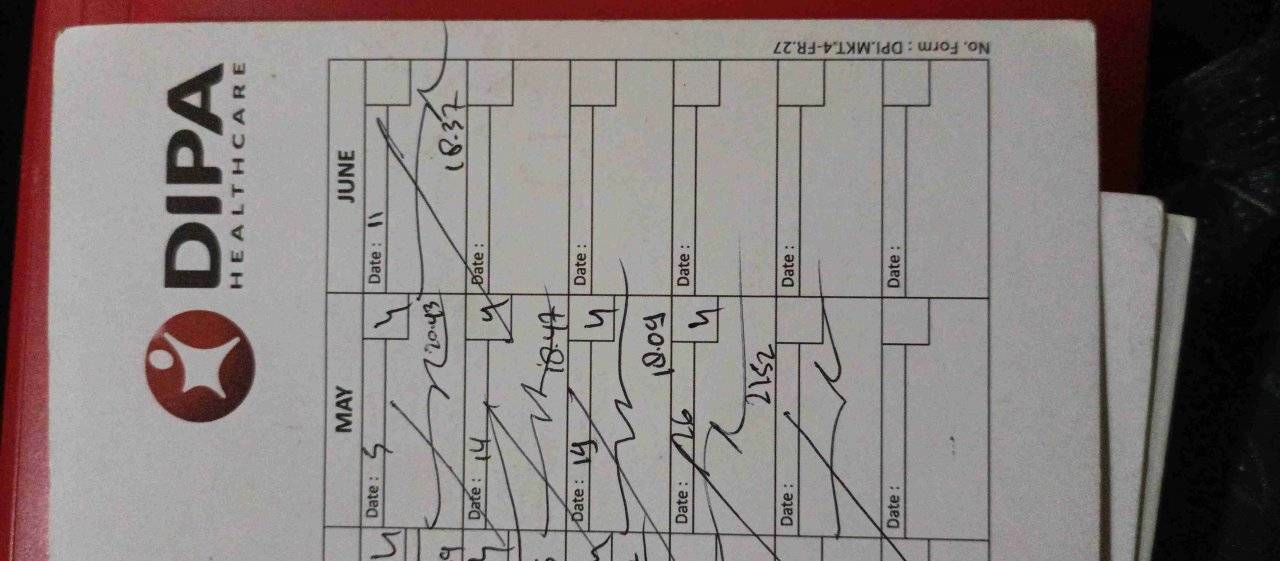 DIPA
HEALTHCARE
No. Form : DPI.MKT.4-FR.27
MAY
JUNE
Date : 5
4
20.43
Date : 11
18.37
Date : 14
4
18.47
Date :
Date : 19
4
18.09
Date :
Date : 26
4
2152
Date :
Date :
Date :
Date :
Date :